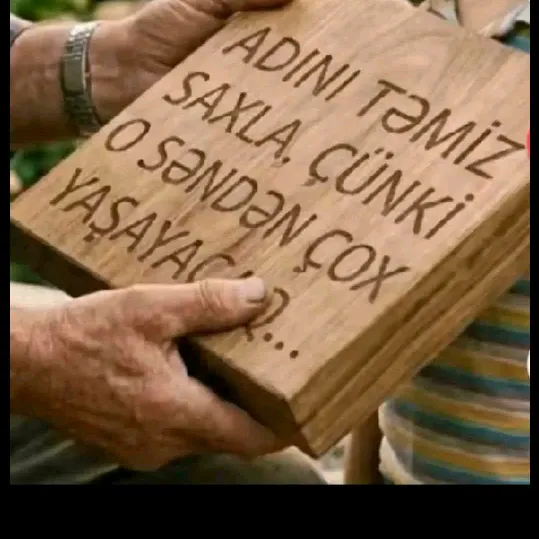 ADINI TƏMİZ
SAXLA, ÇÜNKİ
O SƏNDƏN ÇOX